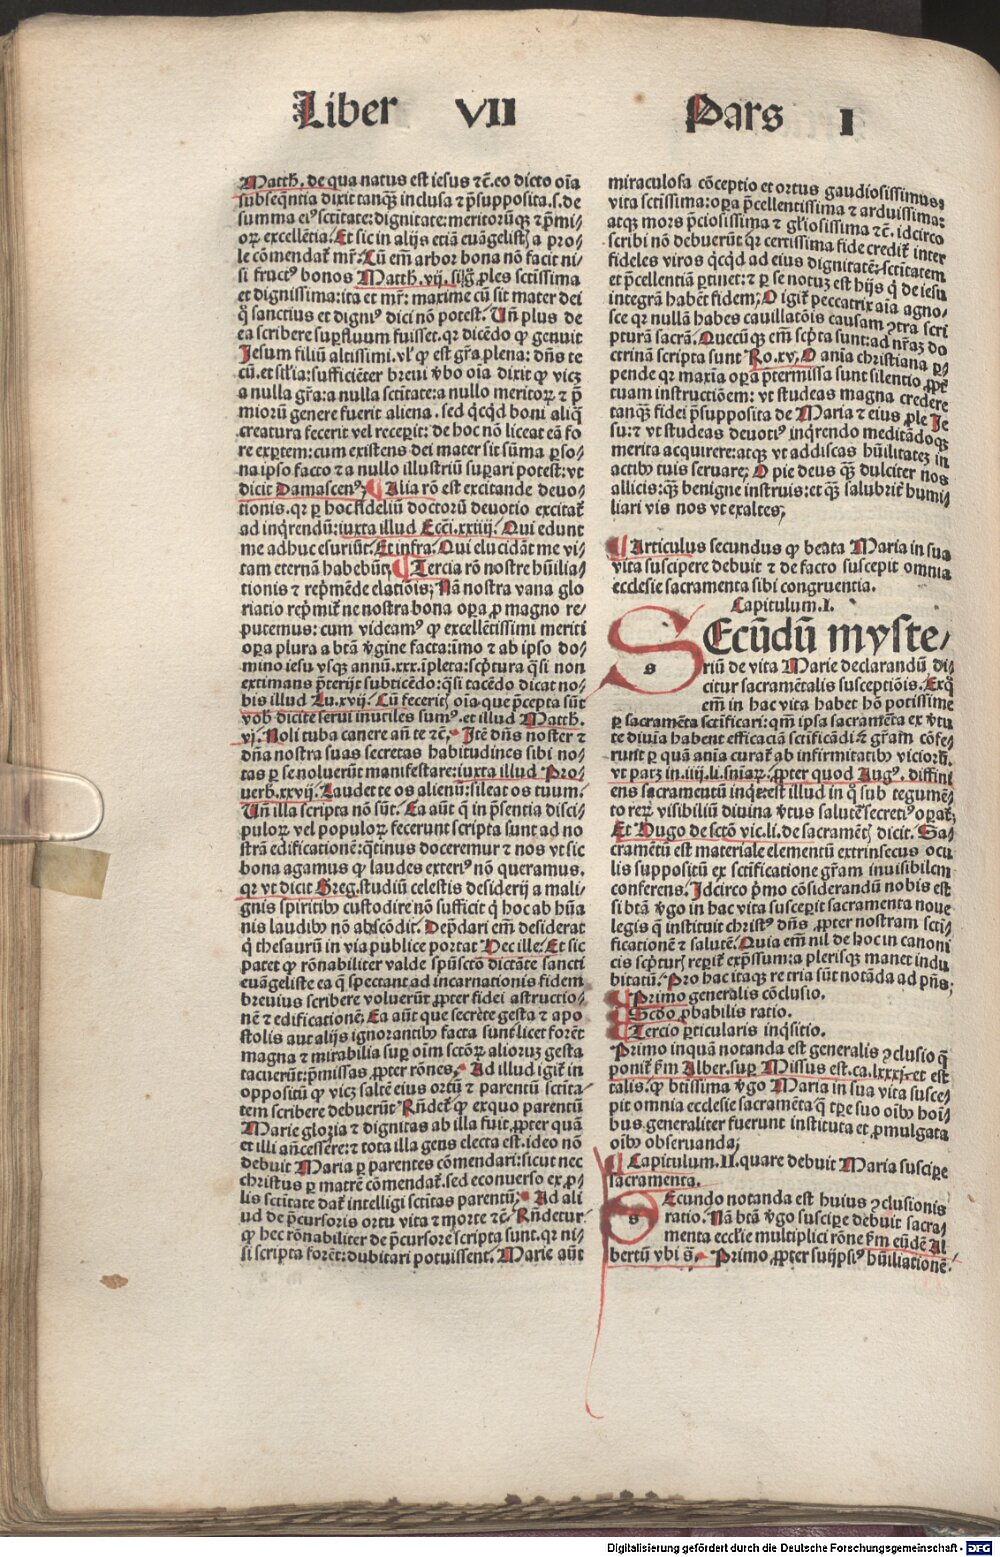 Liber VII Pars I
Matth. de qua natus est iesus ⁊ c̄. eo dicto oīa
subseq̄ntia dixit tanq̄ȝ inclusa ⁊ p̄supposita. s. de
summa eiꝰ sctitate: dignitate: meritorūqȝ ⁊ p̄mi⸗
orꝝ excellētia. Et sic in alijs etiā euāgelistꝭ a pro⸗
le cōmendat̄ mr̄. Cū em̄ arbor bona nō facit ni⸗
si fructꝰ bonos Matth. vij. sil̄r ꝓles sctissima
et dignissima: ita et mr̄: maxime cū sit mater dei
q̄ sanctius et digniꝰ dici nō potest. Vn̄ plus de
ea scribere suꝑfluum fuisset. qꝛ dicēdo ꝙ genuit
Jesum filiū altissimi. vl̓ ꝙ est gr̄a plena: dn̄s te
cū. et sil̄ia: sufficiēter breui v̄bo oīa dixit ꝙ vicȝ
a nulla gr̄a: a nulla sctitate: a nullo meritorꝝ ⁊ p̄
miorū genere fuerit aliena. sed qͥcqͥd boni aliq̄
creatura fecerit vel receꝑit: de hoc nō liceat eā fo
re exꝑtem: cum existens dei mater sit sūma ꝑso⸗
na ipso facto ⁊ a nullo illustriū suꝑari potest: vt
dicit Damascenꝰ. ¶ Alia rō est excitande deuo⸗
tionis. qꝛ ꝑ hoc fideliū doctorū deuotio excitat̄
ad inqͥrendū: iuxta illud Ecci. xxiiij. Qui edunt
me adhuc esuriūt. Et infra. Qui elucidāt me vi⸗
tam eternā habebūt. ¶ Tercia rō nostre hūilia⸗
tionis ⁊ rep̄mēde elatiōis; Nā nostra vana glo
riatio rep̄mit̄ ne nostra bona oꝑa ꝓ magno re⸗
putemus: cum videamꝰ ꝙ excellētissimi meriti
oꝑa plura a btā v̄gine facta: īmo ⁊ ab ipso do⸗
mino iesu vsqȝ annū. xxx. īpleta: scp̄tura qͣsi non
extimans p̄terijt subticēdo: qͣsi tacēdo dicat no⸗
bis illud Lu. xvij. Cū feceritꝭ oīa que p̄cepta sūt
vob̄ dicite serui inutiles sumꝰ. et illud Matth.
vj. Noli tuba canere an̄ te ⁊ c̄. Itē dn̄s noster ⁊
dn̄a nostra suas secretas habitudines sibi no⸗
tas ꝑ se noluerūt manifestare: iuxta illud Pro⸗
uerb. xxvij. Laudet te os alienū: sileat os tuum.
Vn̄ illa scripta nō sūt. Ea aūt q̄ in p̄sentia disci⸗
pulorꝝ vel populorꝝ fecerunt scripta sunt ad no
strā edificationē: qͣtinus doceremur ⁊ nos vt sic
bona agamus ꝙ laudes exteriꝰ nō queramus.
qꝛ vt dicit Greg. studiū celestis desiderij a mali⸗
gnis spiritibȝ custodire nō sufficit qͥ hoc ab hūa
nis laudibȝ nō abscōdit. Dep̄dari em̄ desiderat
qͥ thesaurū in via publice portat Hec ille. Et sic
patet ꝙ rōnabiliter valde spūsctō dictāte sancti
euāgeliste ea q̄ spectant ad incarnationis fidem
breuius scribere voluerūt ꝓpter fidei astructio⸗
nē ⁊ edificationē. Ea aūt que secrēte gesta ⁊ apo
stolis aut alijs ignorantibȝ facta sunt licet forēt
magna ⁊ mirabilia suꝑ oīm sctōrꝝ aliorum gesta
tacuerūt: p̄missas ꝓpter rōnes. Ad illud igit̄ in
oppositū ꝙ vicȝ saltē eius ortū ⁊ parentū sctita⸗
tem scribere debuerūt Rn̄det̄ ꝙ exquo parentū
Marie gloria ⁊ dignitas ab illa fuit. ꝓpter quā
et illi an̄cessēre: ⁊ tota illa gens electa est. ideo nō
debuit Maria ꝑ parentes cōmendari: sicut nec
christus ꝑ matrē cōmendat̄. sed econuerso ex ꝓ⸗
lis sctitate dat̄ intelligi sctitas parentū. Ad ali
ud de p̄cursoris ortu vita ⁊ morte ⁊ c̄. Rn̄detur
ꝙ hec rōnabiliter de p̄cursore scripta sunt. qꝛ ni⸗
si scripta forēt: dubitari potuissent. Marie aūt
miraculosa cōceptio et ortus gaudiosissimus:
vita sctissima: oꝑa p̄cellentissima ⁊ arduissima:
atqȝ mors p̄ciosissima ⁊ gl̓iosissima ⁊ c̄. idcirco
scribi nō debuerūt qꝛ certissima fide credit̄ inter
fideles viros qͥcqͥd ad eius dignitatē: sctitatem
et p̄cellentiā ꝑtinet: ⁊ ꝑ se notuȝ est hijs qͥ de iesu
integrā habēt fidem; O igit̄ peccatrix aīa agno⸗
sce qꝛ nullā habes cauillatōis causam ꝯtra scri
pturā sacrā. Quecūqȝ em̄ scp̄ta sunt: ad nr̄aȝ do
ctrinā scripta sunt Ro. xv. O anīa christiana ꝑ⸗
pende qꝛ maxīa oꝑa p̄termissa sunt silentio ꝓpt̄
tuam instructiōem: vt studeas magna credere
tanqȝ fidei p̄supposita de Maria ⁊ eius ꝓle Je
su: ⁊ vt studeas deuotiꝰ inqͥrendo meditādoqȝ
merita acquirere: atqȝ vt addiscas hūilitateȝ in
actibȝ tuis seruare; O pie deus qͣȝ dulciter nos
allicis: qͣȝ benigne instruis: et qͣȝ salubrit̄ humi⸗
liari vis nos vt exaltes;
¶ Articulus secundus ꝙ beata Maria in sua
vita suscipere debuit ⁊ de facto suscepit omnia
ecclesie sacramenta sibi congruentia.
Capitulum. I.
SEcūdū myste⸗
riū de vita Marie declarandū di⸗
citur sacramētalis susceptiōis. Exqͦ
em̄ in hac vita habet hō potissime
ꝑ sacramēta sctificari: qm̄ ipsa sacramēta ex v̄tu
te diuīa habent efficaciā sctificādi ⁊ gr̄am cōfe⸗
runt ꝑ quā anīa curat̄ ab infirmitatibȝ viciorū.
vt patȝ in. iiij. li. sniarꝝ. ꝓpter quod Augꝰ. diffini
ens sacramentū inqͥt: est illud in qͦ sub tegumē⸗
to rerꝝ visibiliū diuina v̄tus salutē secretiꝰ oꝑat̄.
Et Hugo de sctō vic. li. de sacramētꝭ dicit. Sa⸗
cramētū est materiale elementū extrinsecus ocu
lis suppositū ex sctificatione gr̄am inuisibilem
conferens. Idcirco p̄mo cōsiderandū nobis est
si btā v̄go in hac vita susceꝑit sacramenta noue
legis q̄ instituit christꝰ dn̄s ꝓpter nostram scti⸗
ficationē ⁊ salutē. Quia em̄ nil de hoc in canoni
cis scp̄turꝭ reꝑit̄ exp̄ssum: a plerisqȝ manet indu
bitatū. Pro hac itaqȝ re tria sūt notāda ad pn̄s;
¶ Primo generalis cōclusio.
¶ Scdo ꝓbabilis ratio.
¶ Tercio ꝑticularis inqͥsitio.
Primo inquā notanda est generalis ꝯclusio q̄
ponit̄ ẜm Alber. suꝑ Missus est. ca. lxxxj. et est
talis. ꝙ btissima v̄go Maria in sua vita susce⸗
pit omnia ecclesie sacramēta q̄ tꝑe suo oībȝ hoī⸗
bus generaliter fuerunt instituta et ꝓmulgata
oībȝ obseruanda;
¶ Capitulum. II. quare debuit Maria suscipere
sacramenta.
SEcundo notanda est huius ꝯclusionis
ratio. Nā btā v̄go suscipere debuit sacra⸗
menta eccl̓ie multiplici rōne ẜm eūdē Al
bertū vbi s̄. Primo ꝓpter suijpsiꝰ hūiliationē.
Digitalisierung gefördert durch die Deutsche Forschungsgemeinschaft - DFG